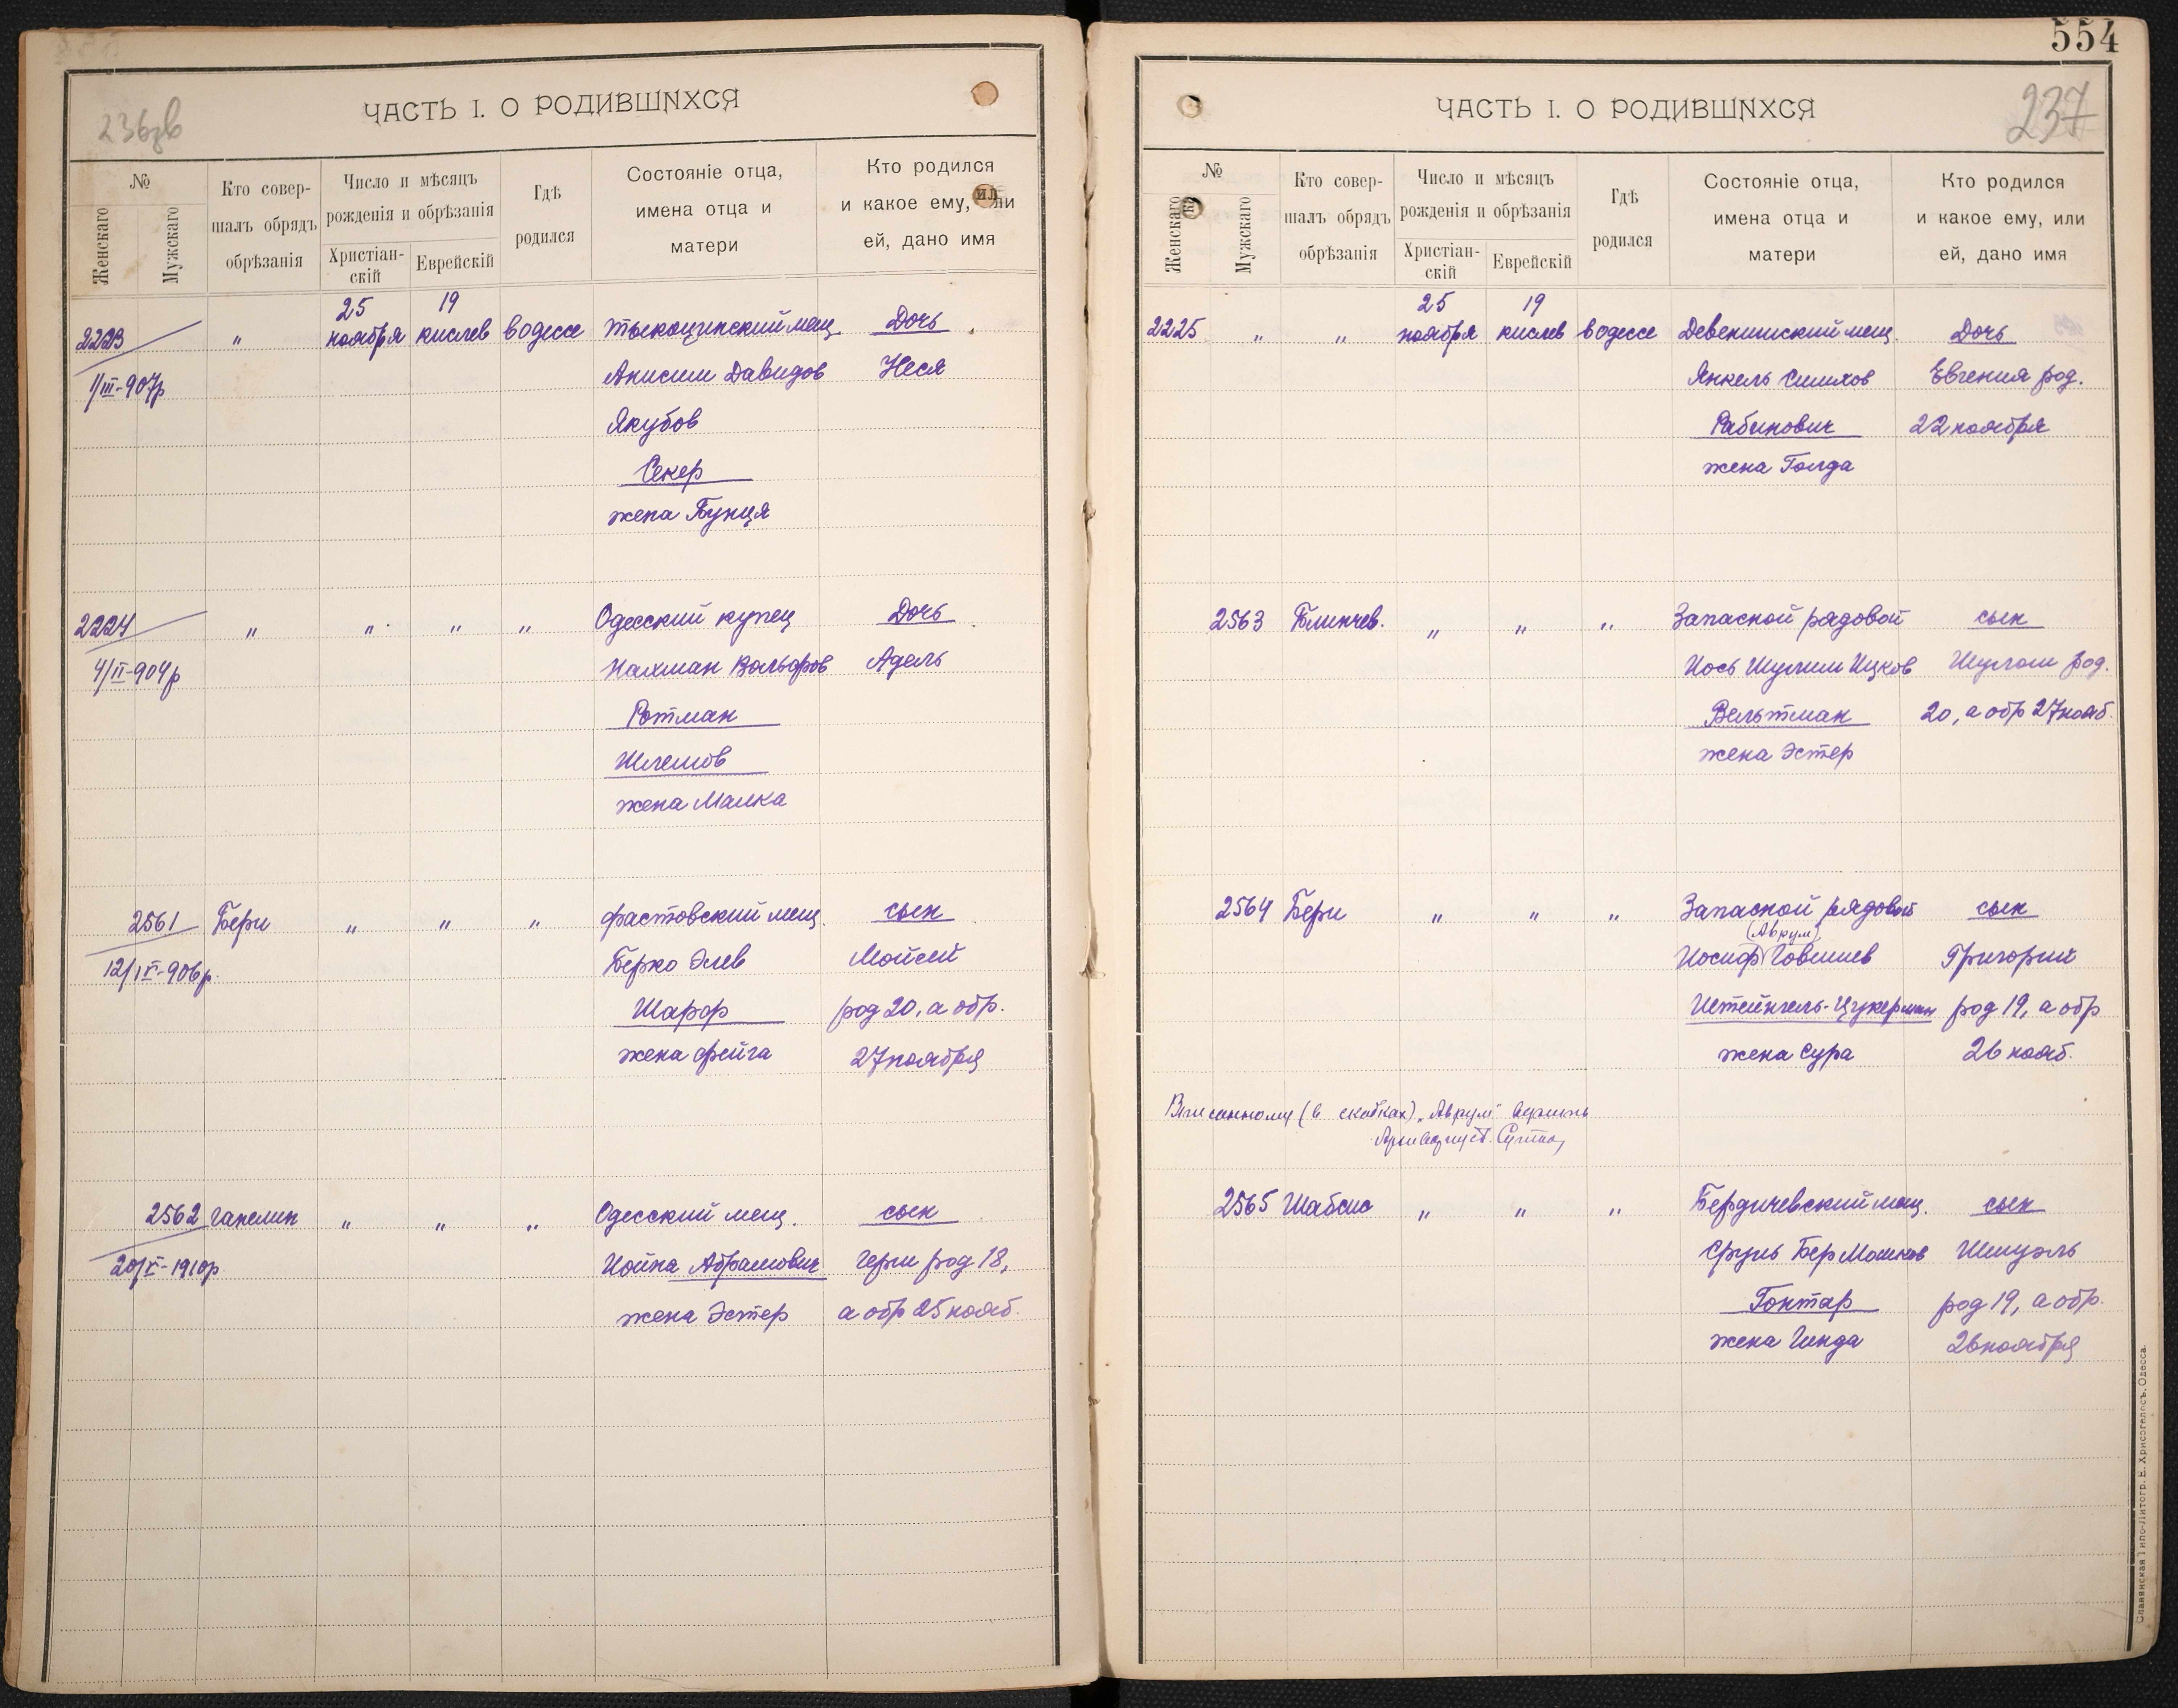 236зв
ЧАСТЬ I. О РОДИВШИХСЯ
№
Женскаго
Мужскаго
Кто совер-
шалъ обрядъ
обрѣзанія
Число и мѣсяцъ
рожденія и обрѣзанія
Христіан-
скій
Еврейскій
Гдѣ
родился
Состояніе отца,
имена отца и
матери
Кто родился
и какое ему, или
ей, дано имя
25 19
2223 " ноября кислев Водессе тыкоцинский мещ. Дочь
1/III-907р Анисим Давидов Неся
Якубов
Секер
жена Бунця
2224 " " " " Одесский купец Дочь
4/II-904р Нахман Вольфов Адель
Ротман
Шлемов
жена Малка
2561 Бери " " " фастовский мещ. сын
12/IV-906р. Берко Элев Мойсей
Шарф род 20, а обр.
жена фейга 27 ноября
2562 Ганелин " " " Одесский мещ. сын
20/X-1910р Иойна Абрамович Герш род 18,
жена Эстер а обр 25 нояб.
554
237
ЧАСТЬ I. О РОДИВШИХСЯ
№
Женскаго
Мужскаго
Кто совер-
шалъ обрядъ
обрѣзанія
Число и мѣсяцъ
рожденія и обрѣзанія
Христіан-
скій
Еврейскій
Гдѣ
родился
Состояніе отца,
имена отца и
матери
Кто родился
и какое ему, или
ей, дано имя
25 19
2225 " " ноября кислев Водессе Девенишский мещ. Дочь
Янкель Симхов Евгения род.
Рабинович 22 ноября
жена Голда
2563 Блинчев. " " " Запасной рядовой сын
Иось Шулим Ицков Шулом род.
Вельтман 20, а обр 27 нояб.
жена Эстер
2564 Бери " " " Запасной рядовой сын
(Аврум)
Иосиф Говшиев Григорий
Штейнгель-Цукерман род 19, а обр
жена Сура 26 нояб.
Вписанному (в скобках) „Аврум" верить
2565 Шабсис " " " Бердичевский мещ. сын
Сруль Бер Мошков Шмуэль
Гонтар род 19, а обр.
жена Гинда 26 ноября
Славянская Типо-Литогр. Е. Хрисогелосъ, Одесса.